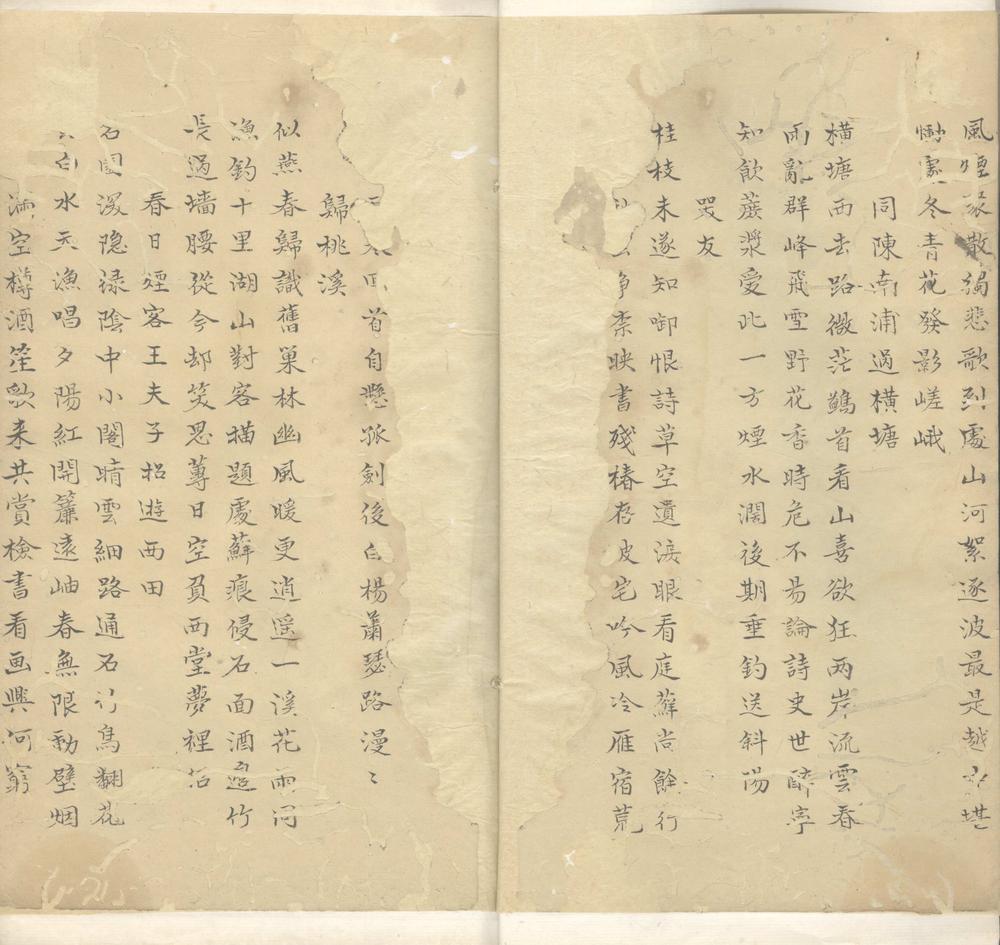 風煙散漫悲歌烈處山河絮逐波最是越
慟處冬青花發影嵯峨
同陳南浦過橫塘
橫塘西去路微茫鷁首看山喜欲狂两岸流雲春
雨亂群峰飛雪野花香時危不易論詩史世醉寧
知飲蔗漿愛此一方煙水濶後期垂釣送斜陽
哭友
桂枝未遂知啣恨詩草空遺淚眼看庭蘚尚餘行
柰映書殘椿存皮宅吟風冷雁宿荒
首自懸孤劍後白楊蕭瑟路漫〻
歸桃溪
似燕春歸識舊巢林幽風暖更逍遥一溪花雨问
漁釣十里湖山對客描題處蘚痕侵石面酒邊竹
長過墙腰從今却笑思蓴日空負西堂夢裡招
春日煙客王夫子招遊西田
名園深隐綠陰中小閣晴雲細路通石行鳥翻花
白水天漁唱夕陽紅開簾遠岫春無限動壁烟
满空樽酒笙歌来共賞檢書看画興何窮